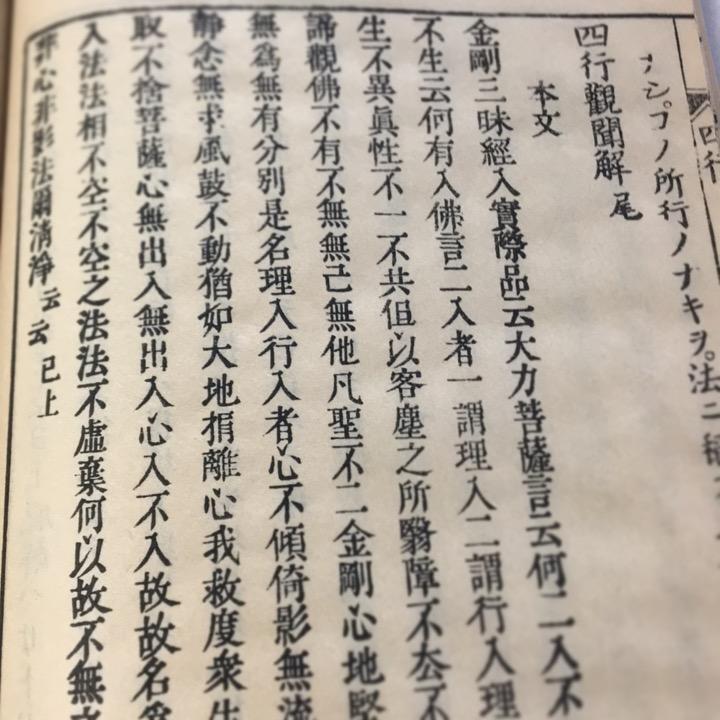 四行
ナシ。コノ所行ノナキヲ。法ニ
四行觀聞解尾
本文
金剛三昧經入實際品云大力菩薩言云何二入不
不生云何有入佛言二入者一謂理入二謂行入理
生不異眞性不一不共但以客塵之所翳障不去不
諦觀佛不有不無無己無他凡聖不二金剛心地堅
無爲無有分別是名理入行入者心不傾倚影無流
靜念無求風鼓不動猶如大地捐離心我救度衆生
取不捨菩薩心無出入無出入心入不入故故名爲
入法法相不空不空之法法不虛棄何以故不無
非心非影法爾清淨云云已上